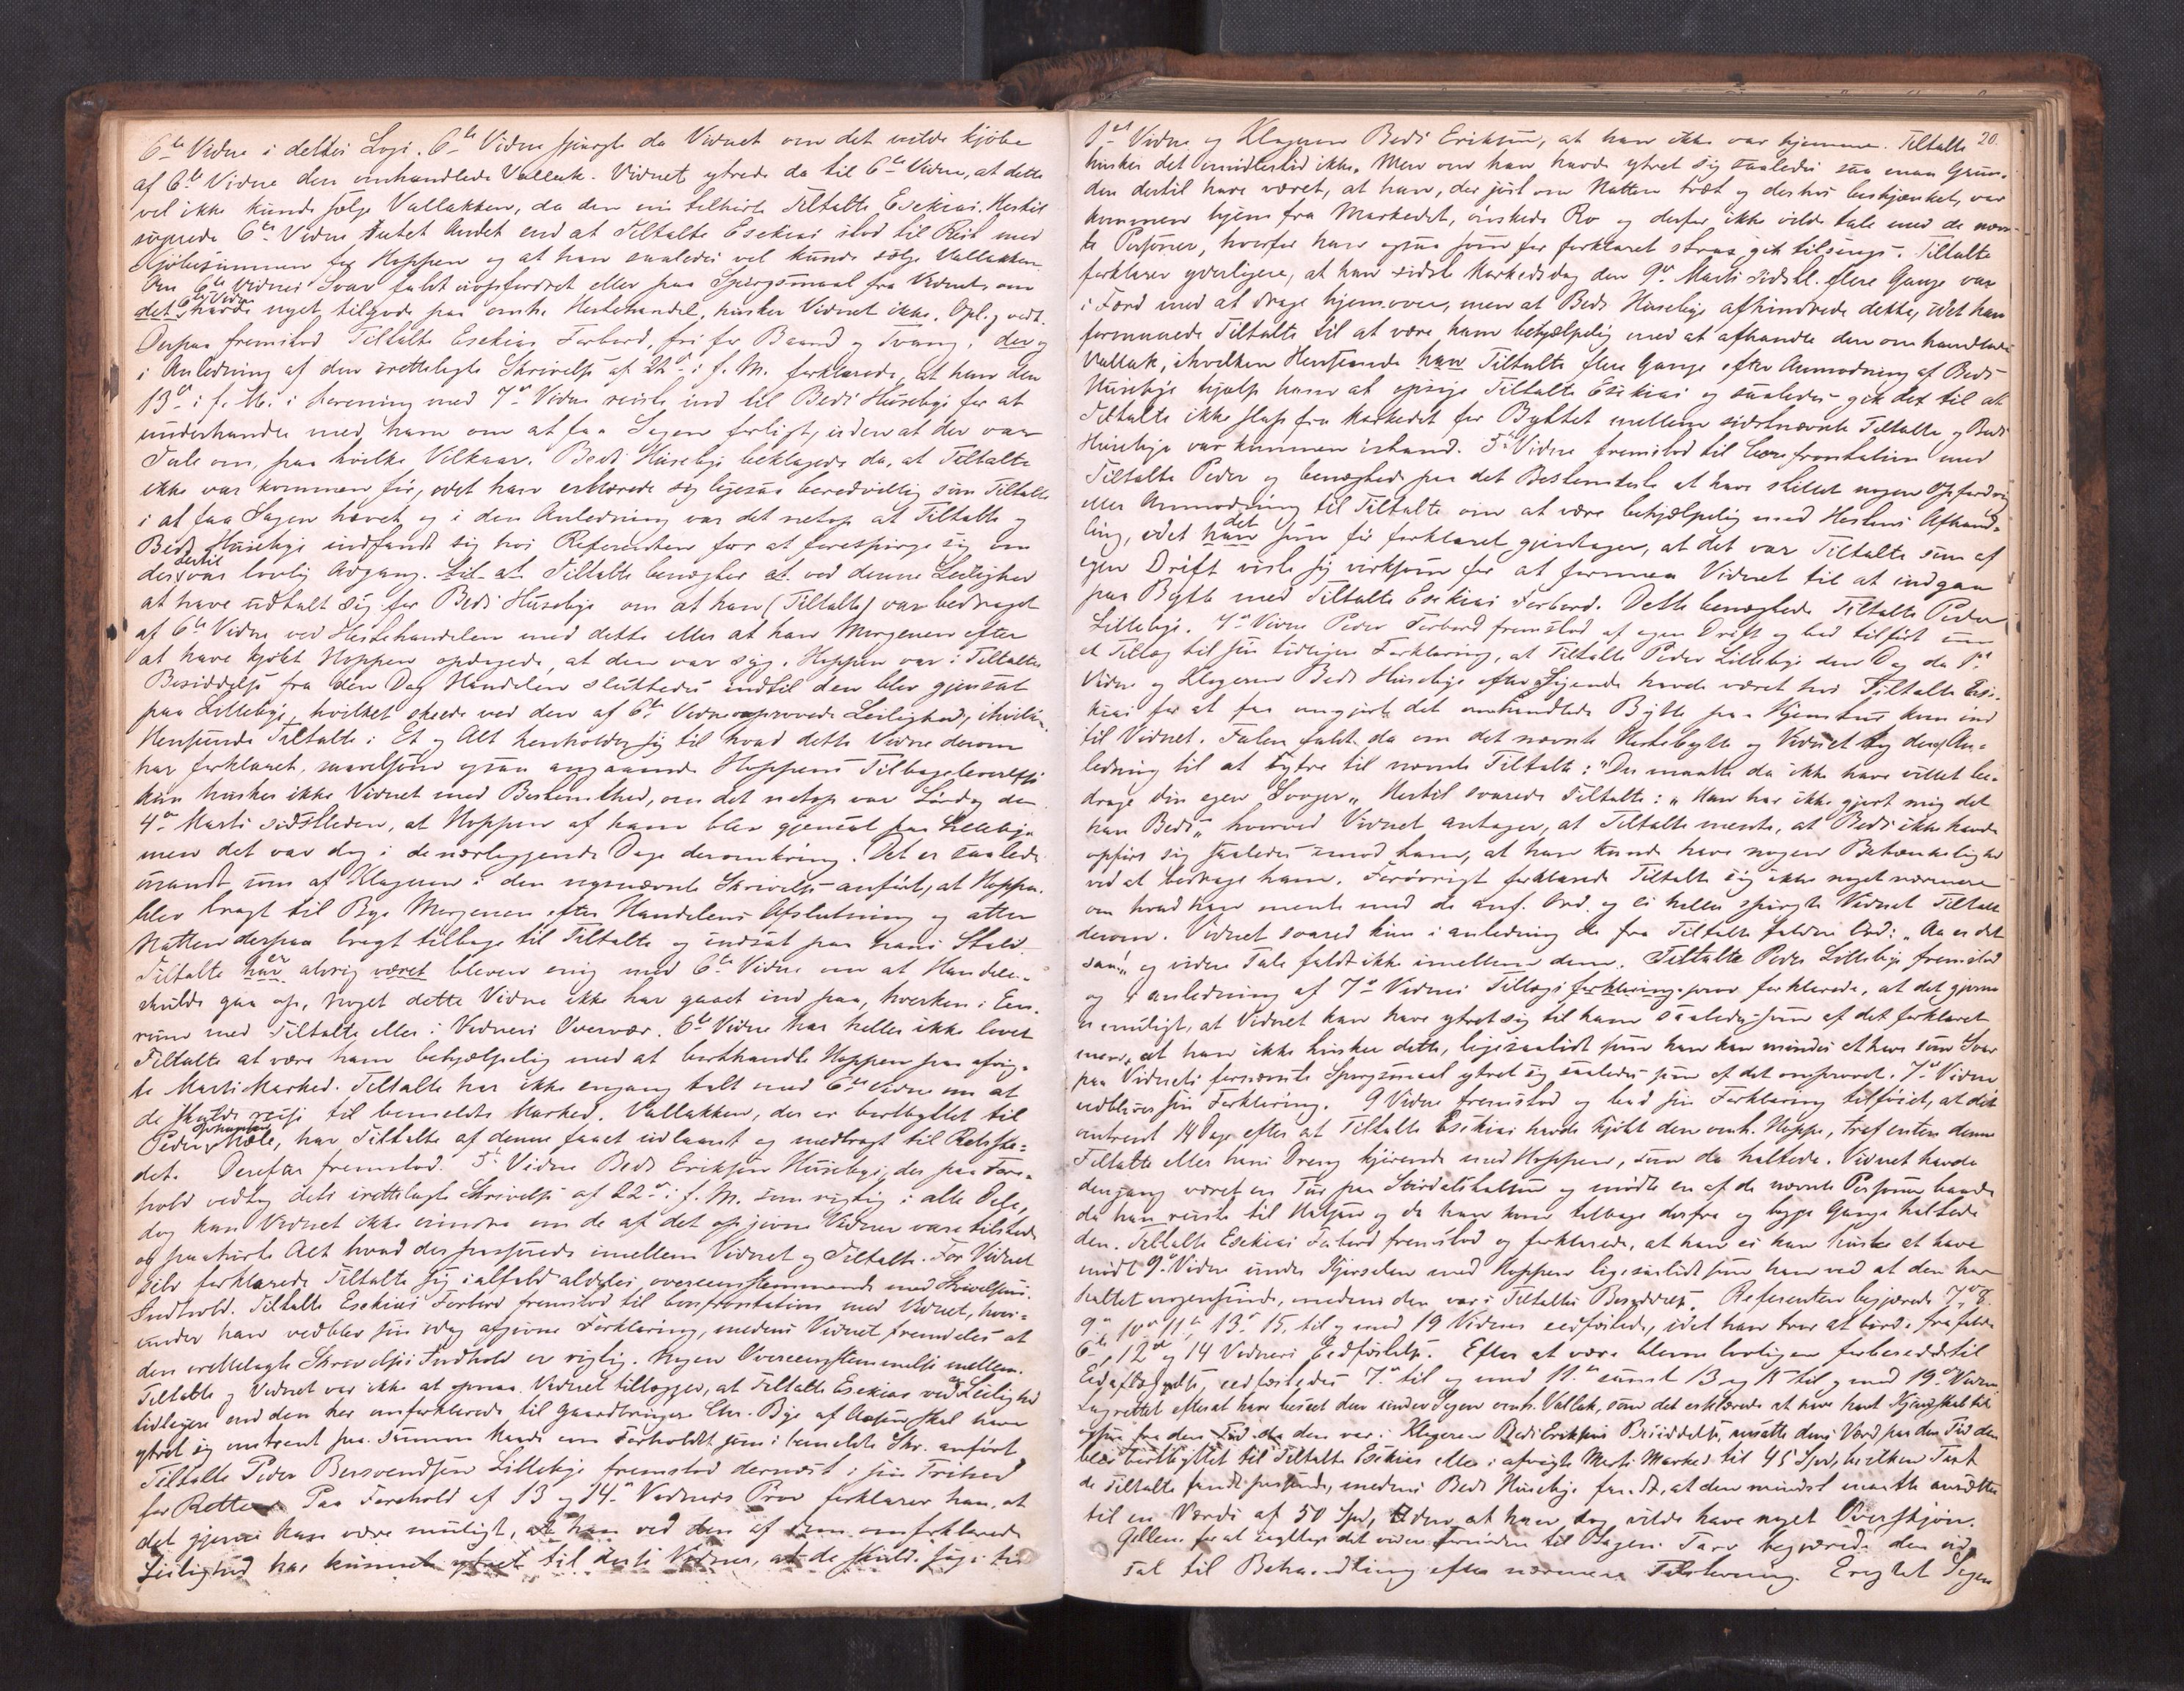 6te Vidne i dettes Logi. 6te Vidne spurgte da Vidnet om det vilde kjøbe
af 6te Vidne den omhandlede Vallak. Vidnet ytrede da til 6te Vidne, at dette
vel ikke kunde sælge Vallakken, da den jo tilhørte Tiltalte Esekias. Hertil
svarede 6te Vidne Intet Andet end at Tiltalte Esekias stod til Rest med
Kjøbesummen for Hoppen og at han saaledes vel kunde sælge Vallakken.
Om 6te Vidnes Svar faldt uopfordret eller paa Spørgsmaal fra Vidnet om
det 6te Vidne havde noget tilgode paa omh. Hestehandel, husker Vidnet ikke. Opl. og vedt.
Derpaa fremstod Tiltalte Esekias Forbord, fri for Baand og Tvang, der og
i Anledning af den irettelagte Skrivelse af 22de i f. M. forklarede, at han den
13de i f. M. i Forening med 7de Vidne reiste ind til Beds Huseby for at
underhandle med ham om at faa Sagen forligt, uden at der var
Tale om, paa hvilke Vilkaar. Beds Huseby beklagede da, at Tiltalte
ikke var kommen før, idet han erklærede sig ligesaa beredvillig som Tiltalte
i at faa Sagen hævet, og i den Anledning var det netop at Tiltalte og
Beds Huseby indfandt sig hos Referenten for at forespørge sig om
der dertil var lovlig Adgang. til at Tiltalte benægter at ved denne Leilighed
at have udtalt sig for Beds Huseby om at han (Tiltalte) var bedraget
af 6te Vidne ved Hestehandelen med dette eller at han Morgenen efter
at have kjøbt Hoppen opdagede, at den var syg. Hoppen var i Tiltaltes
Besiddelse fra den Dag Handelen sluttedes indtil den blev gjensat
paa Lilleby, hvilket skeede ved den af 6te Vidne omprovede Leilighed, i hvilken
Henseende Tiltalte i Et og Alt henholder sig til hvad dette Vidne derom
har forklaret, saavelsom ogsaa angaaende Hoppens Tilbageleverelse
kun husker ikke Vidnet med Bestemthed, om det netop var Lørdag den
4de Marts sidstleden, at Hoppen af ham blev gjensat paa Lilleby
men det var dog i de nærliggende Dage deromkring. Det er saaledes
usandt som af Klageren i den nysnævnte Skrivelse anført, at Hoppen
blev bragt til Bye Morgenen efter Handelens Afslutning og atter
Natten derpaa bragt tilbage til Tiltalte og indsat paa hans Stald.
Tiltalte har er aldrig været bleven enig med 6te Vidne om at Handelen
skulde gaa op, noget dette Vidne ikke har gaaet ind paa, hverken i Een-
rum med Tiltalte eller i Vidners Overvær. 6te Vidne har heller ikke lovet
Tiltalte at være ham behjælpelig med at borthandle Hoppen paa afvig-
te Marts Marked. Tiltalte har ikke engang talt med 6te Vidne om at
de skulde reise til bemeldte Marked. Vallakken, der er bortbyttet til
Peder Johansen Mæle, har Tiltalte af denne faaet udlaant og medbragt til Retsste-
det. Derefter fremstod 5te Vidne Beds Eriksen Huseby, der paa Fore-
hold vedtog dets irettelagte Skrivelse af 22de i f. M. som rigtig i alle Dele,
dog kan Vidnet ikke erindre om de af det opgivne Vidner vare tilstede
og paahørte Alt hvad der passerede imellem Vidnet og Tiltalte. For Vidnet
selv forklarede Tiltalte sig ialfald aldeles overeensstemmende med Skrivelsens
Indhold. Tiltalte Esekias Forbord fremstod til Confrontation med Vidnet, hvor-
under han vedblev sin idag afgivne Forklaring, medens Vidnet fremdeles at
den irettelagte Skrivelses Indhold er rigtig. Nogen Overeensstemmelse mellem
Tiltalte og Vidnet var ikke at opnaa. Vidnet tillægger, at Tiltalte Esekias ved en Leilighed
tidligere end den her omforklarede til Gaardbruger Chr. Bye af Aasen skal have
ytret sig omtrent paa samme Maade om Forholdet som i bemeldte Skr. anført.
Tiltalte Peder Bersvendsen Lilleby fremstod dernæst i sin Frihed
for Retten. Paa Forehold af 13 og 14de Vidners Prov forklarer han, at
det gjerne kan være muligt, at han ved den af dem omforklarede
Leilighed har kunnet ytret til disse Vidner, at de skulde sige til
1ste Vidne og Klageren Beds Eriksen, at han ikke var hjemme. Tiltalte 20.
husker det imidlertid ikke. Men om han havde ytret sig saaledes saa maa Grun-
den dertil have været, at han, der just om Natten træt og desuden beskjænket, var
kommen hjem fra Markedet, ønskede Ro og derfor ikke vilde tale med de nævn-
te Personer, hvorfor han ogsaa som før forklaret strax gik tilsengs. Tiltalte
forklarer yderligere, at han sidste Markedsdag den 9de Marts sidstl. flere Gange var
i Færd med at drage hjemover, men at Beds Huseby afhindrede dette, idet han
formanede Tiltalte til at være ham behjælpelig med at afhandle den omhandlede
Vallak, i hvilken Henseende han Tiltalte flere Gange efter Anmodning af Beds
Huseby hjalp ham at opsøge Tiltalte Esekias og saaledes gik det til at
Tiltalte ikke slap fra Markedet før Byttet mellem sidstnævnte Tiltalte og Beds
Huseby var kommen istand. 5te Vidne fremstod til Confrontation med
Tiltalte Peder og benægtede paa det Bestemteste at have stillet nogen Opfordring
eller Anmodning til Tiltalte om at være behjælpelig med Hestens Afhand-
ling, idet han det som før forklaret gjentager, at det var Tiltalte som af
egen Drift viste sig virksom for at formaa Vidnet til at indgaa
paa Bytte med Tiltalte Esekias Forbord. Dette benægtede Tiltalte Peder
Lilleby. 7de Vidne Peder Forbord fremstod af egen Drift og bad tilført som
et Tillæg til sin tidligere Forklaring, at Tiltalte Peder Lilleby den Dag da 1ste
Vidne og Klageren Beds Huseby efter Sigende havde været hos Tiltalte Ese-
kias for at faa omgjort det omhandlede Bytte paa Hjemtur kom ind
til Vidnet. Talen faldt da om det nævnte Hestebytte og Vidnet tog deraf An-
ledning til at ytre til nævnte Tiltalte: "Du maatte da ikke have villet be-
drage din egen Svoger". Hertil svarede Tiltalte: "Han har ikke gjort mig det
han Beds", hvorved Vidnet antager, at Tiltalte mente, at Beds ikke havde
opført sig saaledes imod ham, at han kunde have nogen Betænkelighed
ved at bedrage ham. Forøvrigt forklarede Tiltalte sig ikke noget nærmere
om hvad han mente med de anf. Ord, og ei heller spurgte Vidnet Tiltalte
derom. Vidnet svared kun i anledning de fra Tiltalte faldne Ord: "Aa er det
saa!" og videre Tale faldt ikke imellem dem. Tiltalte Peder Lilleby fremstod
og i anledning af 7de Vidnes Tillægsforklaring forklarede, at det gjerne
er muligt, at Vidnet kan have ytret sig til ham saaledes som af det forklaret
men at han ikke husker dette, ligesaalidt som han kan mindes at have som Svar
paa Vidnets fornævnte Spørgsmaal ytret sig saaledes som af det omprovet. 7de Vidne
vedbliver sin Forklaring. 9 Vidne fremstod og bad sin Forklaring tilføiet, at det
omtrent 14 Dage efter at Tiltalte Esekias havde kjøbt den omh. Hoppe, traf enten denne
Tiltalte eller hans Dreng kjørende med Hoppen, som da haltede. Vidnet havde
dengang været en Tur paa Stjørdalshalsen og mødte en af de nævnte Personer baade
da han reiste til Halsen og da han kom tilbage derfra og begge Gange haltede
den. Tiltalte Esekias Forbord fremstod og forklarede, at han ei kan huske at have
mødt 9de Vidne under Kjørselen med Hoppen ligesaalidt som han ved at den har
haltet nogensinde, medens den var i Tiltaltes Besiddelse. Referenten begjærede 7de 8
9de 10de 11te, 13de 15, til og med 19 Vidner eedfæstede, idet han tror at burde frafalde
6te, 12te og 14 Vidners Eedfæstelse. Efter at være blevne lovligen forberedede til
Eedsaflæggelse, eedfæstedes 7de til og med 11te samt 13 og 15 til og med 19de Vidne.
Lagrettet efterat have beseet den under Sagen omh. Vallak, som det erklærede at have havt Kjendskab til
ogsaa fra den Tid da den var i Klageren Beds Eriksens Besiddelse, ansatte dens Værd paa den Tid den
blev bortbyttet til Tiltalte Esekias eller i afvigte Marts Marked til 45 Spd, hvilken Taxt
de Tiltalte fandt passende, medens Beds Huseby fandt, at den mindst maatte ansættes
til en Værdi af 50 Spd, uden at han dog vilde have noget Overskjøn.
Gillen for at iagttage det videre Fornødne til Sagens Tarv begjærede den ud-
sat til Behandling efter nærmere Tilstevning. Eragtet Sagen